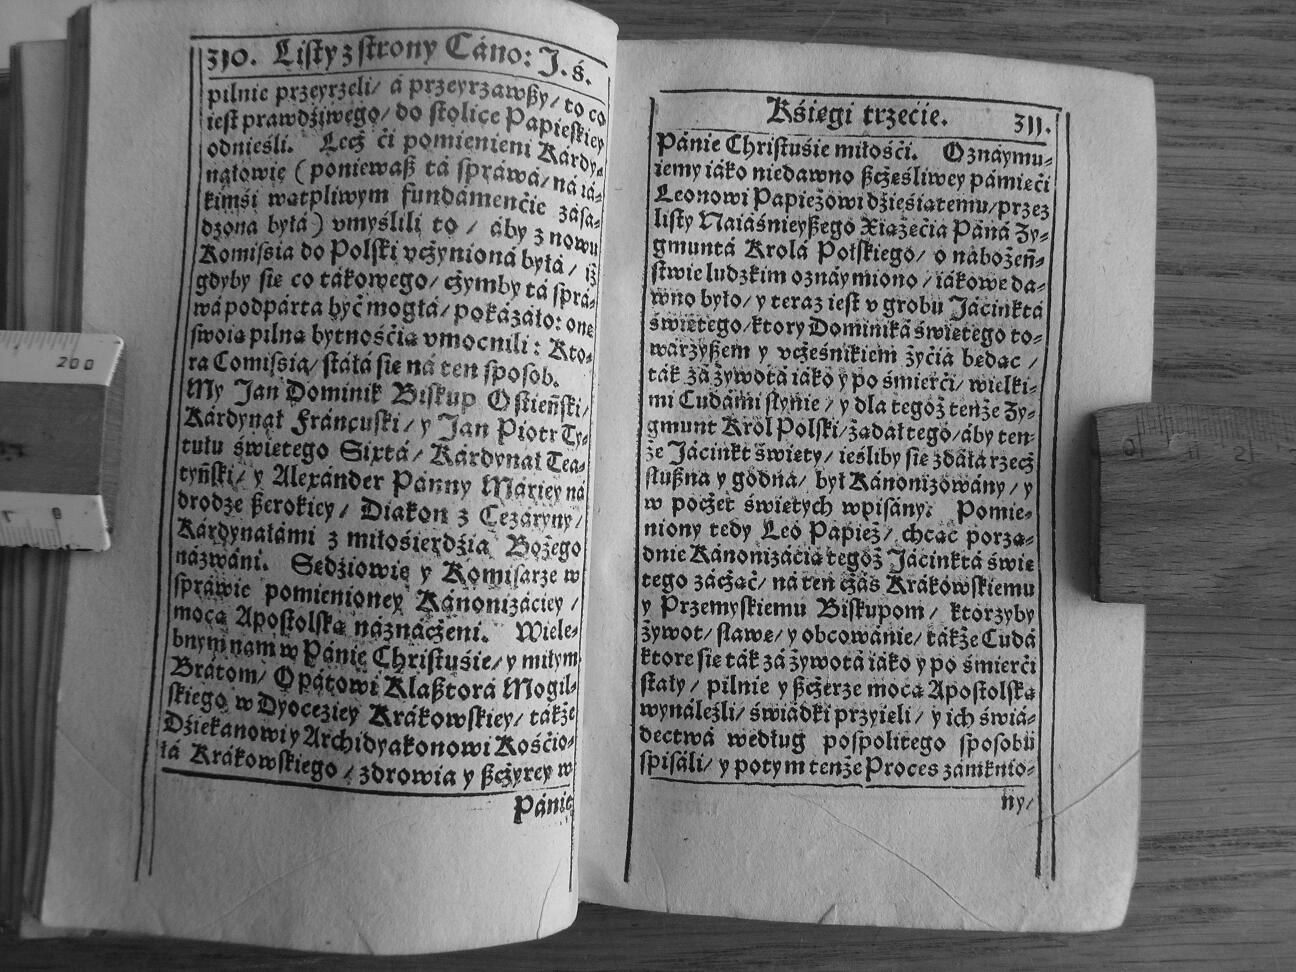 310. Listy z strony Cáno: J. ś.
pilnie przeyrzeli/ á przeyrzawßy/ to co
iest prawdźiwego/ do stolice Papieskiey
odnieśli. Lecż ći pomienieni Kárdy-
nałowię (poniewaß tá spráwá/ ná iá-
kimśi wątpliwym fundámenćie zásá-
dzona byłá) vmyślili to / áby z nowu
Komissia do Polski vcżynioná byłá / iż
gdyby się co tákowego/ cżymby tá sprá-
wá podpárta być mogłá/ pokázáło: one
swoią pilną bytnośćią vmocnili: Kto-
ra Comissia/ stáłá się ná ten sposob.
My Jan Dominik Biskup Ostieński/
Kárdynał Fráncuski/ y Jan Piotr Ty-
tułu świętego Sixtá/ Kárdynał Tea-
tyński/ y Alexánder Pánny Máriey ná
drodze ßerokiey/ Diakon z Cezáryny/
Kárdynałámi z miłośierdźia Bożego
názwáni. Sędźiowię y Komisarze w
spráwie pomienioney Kánonizáciey /
mocą Apostolską náznácżeni. Wiele-
bnym nam w Pánie Christuśie/ y miłym
Brátom/ Opátowi Klaßtorá Mogil-
skiego w Dyoceziey Krákowskiey/ tákże
Dźiekanowi y Archidyakonowi Kośćio-
łá Krákowskiego / zdrowia y ßcżyrey w
Pánie
Kśięgi trzećie. 311.
Pánie Christuśie miłośći. Oznáymu-
iemy iáko niedawno ßcżęśliwey pámięći
Leonowi Papieżowi dźieśiątemu/ przez
listy Naiáśnieyßego Xiążęćia Páná Zy-
gmuntá Krolá Polskiego/ o nabożeń-
stwie ludzkim oznáymiono / iákowe da-
wno było/ y teraz iest v grobu Jácinktá
świętego/ ktory Dominiká świętego to-
warzyßem y vcżęśnikiem żyćia będąc /
ták zá żywotá iáko y po śmierći/ wielki-
mi Cudámi słynie / y dla tegoż tenże Zy-
gmunt Krol Polski/ żądał tego/ áby ten-
że Jácinkt święty/ ieśliby się zdáłá rzecż
słußna y godna/ był Kánonizowány/ y
w pocżet świętych wpisány. Pomie-
niony tedy Leo Papież/ chcąc porzą-
dnie Kánonizáciá tegoż Jácinktá świę
tego zácżąć/ ná ten cżás Krákowskiemu
y Przemyskiemu Biskupom/ ktorzyby
żywot/ sławę/ y obcowánie/ tákże Cudá
ktore się ták zá żywotá iáko y po śmierći
stały/ pilnie y ßcżerze mocą Apostolską
wynáleźli/ świádki przyięli/ y ich świá-
dectwá według pospolitego sposobu
spisáli/ y potym tenże Proces zámknio-
ny/